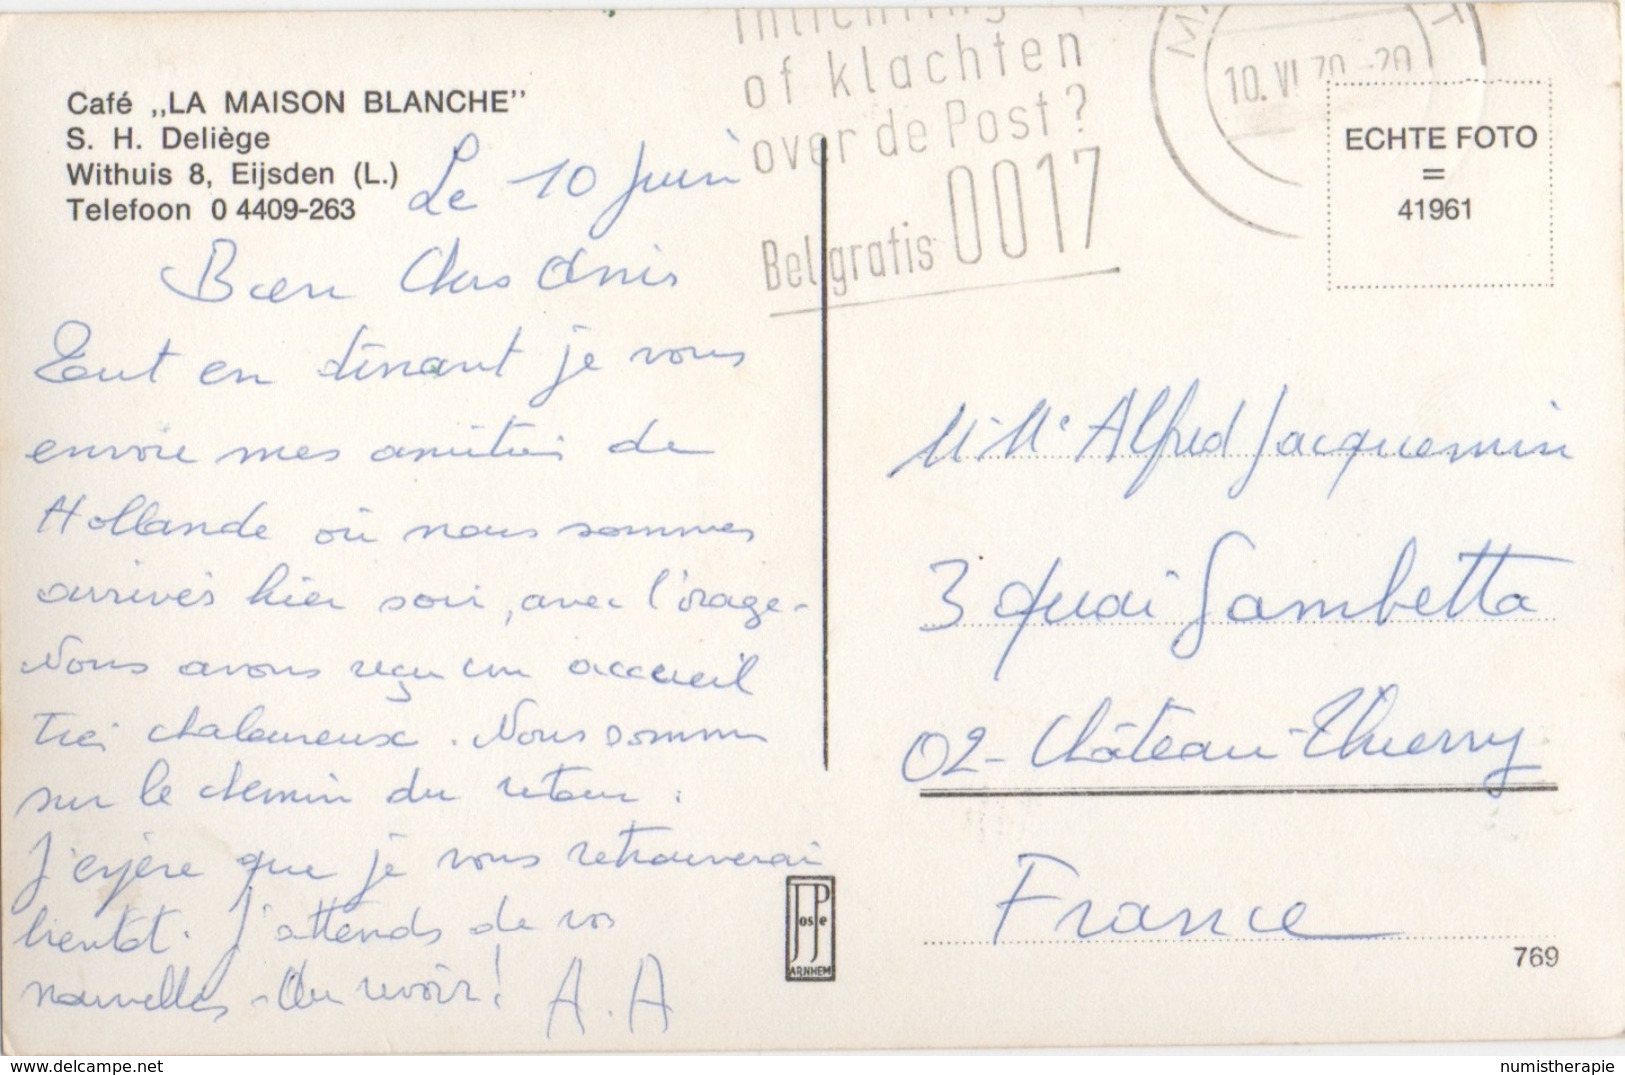 Café „LA MAISON BLANCHE”
S. H. Deliège
Withuis 8, Eijsden (L.)
Telefoon 0 4409-263
Le 10 Juin
Bien Chers Amis
Tout en dînant je vous
envoie mes amitiés de
Hollande où nous sommes
arrivés hier soir, avec l'orage-
Nous avons reçu un accueil
très chaleureux. Nous sommes
sur le chemin du retour.
J'espère que je vous retrouverai
bientôt. J'attends de vos
nouvelles - Au revoir!
A.A
of klachten
over de Post?
Bel gratis 0017
10.VI.70.-20
ECHTE FOTO
=
41961
M. Me Alfred Jacquemin
3 quai Gambetta
02- Château-Thierry
France
JosPe
ARNHEM
769
numistherapie